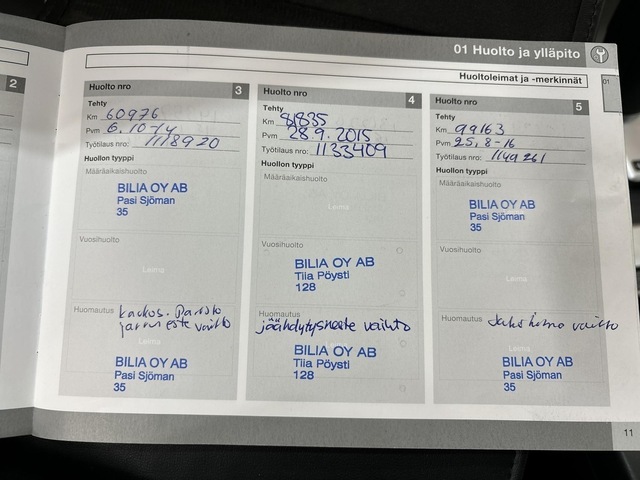 01 Huolto ja ylläpito
Huoltoleimat ja -merkinnät
01
2
Huolto nro 3
Tehty
Km 60976
Pvm 6.10-14
Työtilaus nro: 1118920
Huollon tyyppi
Määräaikaishuolto
BILIA OY AB
Pasi Sjöman
35
Vuosihuolto
Leima
Huomautus kaukos. Paristo
jarruneste vaihto
Leima
BILIA OY AB
Pasi Sjöman
35
Huolto nro 4
Tehty
Km 81835
Pvm 28.9.2015
Työtilaus nro: 1133409
Huollon tyyppi
Määräaikaishuolto
Leima
Vuosihuolto
BILIA OY AB
Tiia Pöysti
128
Huomautus
jäähdytysneste vaihto
Leima
BILIA OY AB
Tiia Pöysti
128
Huolto nro 5
Tehty
Km 99163
Pvm 25.8-16
Työtilaus nro: 1149261
Huollon tyyppi
Määräaikaishuolto
BILIA OY AB
Pasi Sjöman
35
Vuosihuolto
Leima
Huomautus Jakohihna vaihto
Leima
BILIA OY AB
Pasi Sjöman
35
11